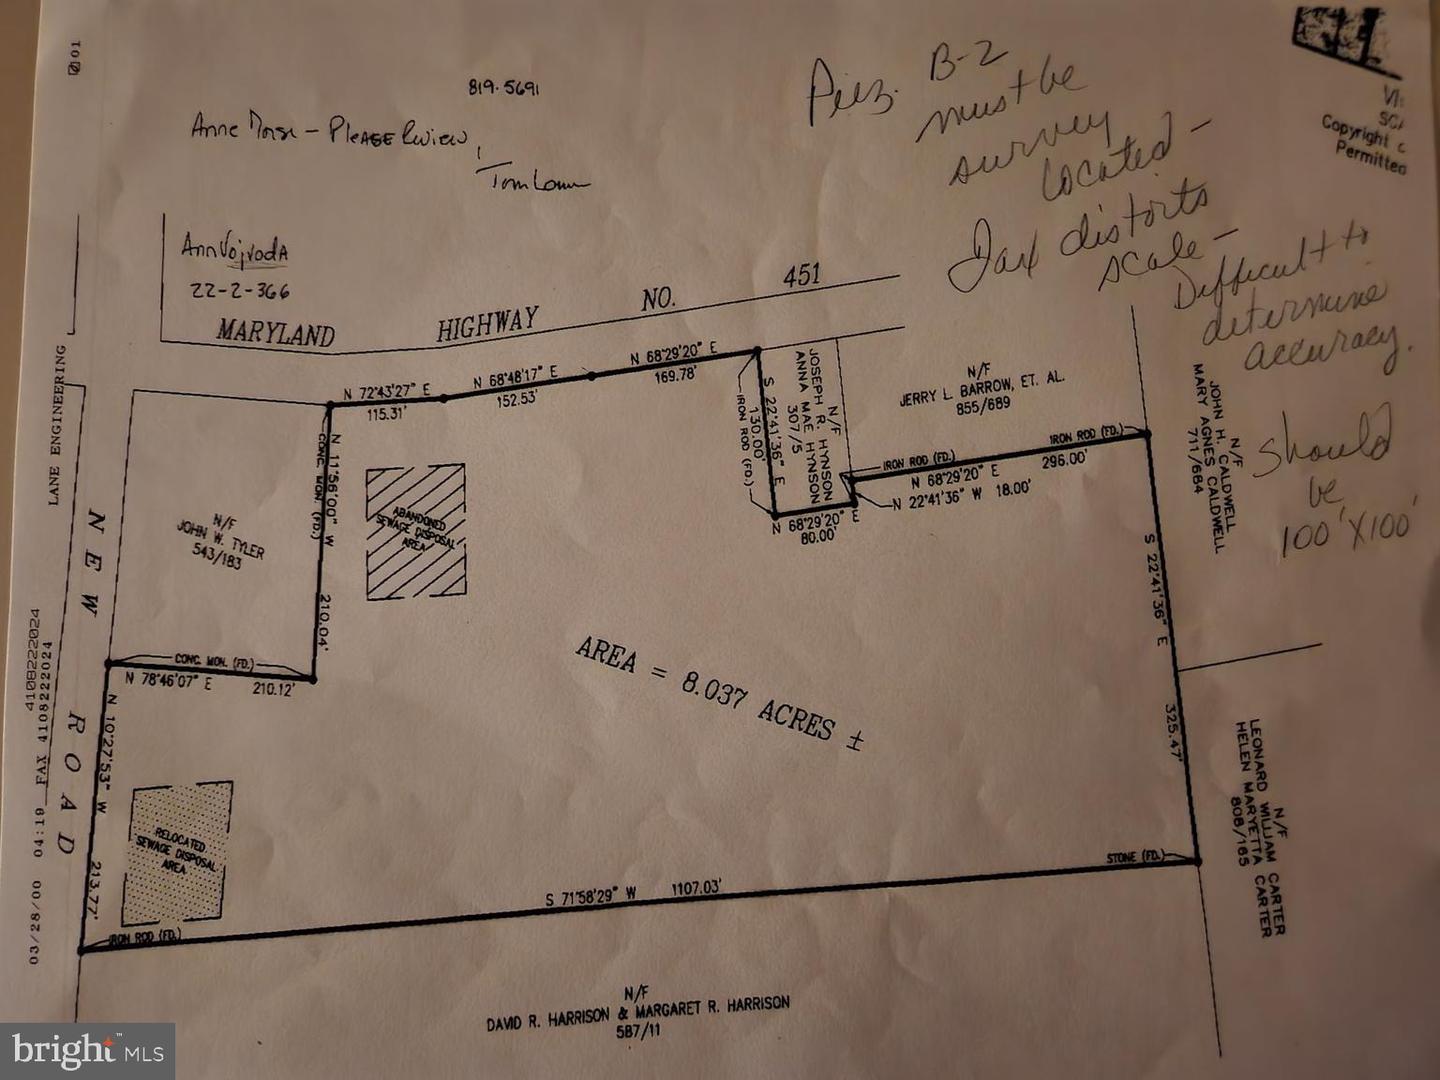 01
819-5691
Anne Morse - Please Review,
Piez. B-2
must be
survey
located -
Fax distorts
scale -
Difficult to
determine
accuracy.
Should
be
100' X 100'
SCA
Copyright
Permitted
Ann Vojvoda
22-2-366
MARYLAND HIGHWAY NO. 451
LANE ENGINEERING
03/28/00 04:19 FAX 4108222024
4108222024
NEW ROAD
N 72°43'27" E
115.31'
N 68°48'17" E
152.53'
N 68°29'20" E
169.78'
N/F
JOHN W. TYLER
543/183
CONC. MON. (FD.)
N 11°56'00" W 210.04'
ABANDONED
SEWAGE DISPOSAL
AREA
IRON ROD (FD.)
130.00'
S 22°41'36" E
N/F
JOSEPH R. HYNSON
ANNA MAE HYNSON
307/5
N/F
JERRY L. BARROW, ET. AL.
855/689
IRON ROD (FD.)
IRON ROD (FD.)
N 68°29'20" E 296.00'
N 22°41'36" W 18.00'
N 68°29'20" E
80.00'
N/F
JOHN H. CALDWELL
MARY AGNES CALDWELL
711/684
S 22°41'36" E 325.47'
AREA = 8.037 ACRES ±
CONC. MON. (FD.)
N 78°46'07" E 210.12'
N 10°27'53" W 213.77'
RELOCATED
SEWAGE DISPOSAL
AREA
N/F
LEONARD WILLIAM CARTER
HELEN MARYETTA CARTER
808/165
STONE (FD.)
S 71°58'29" W 1107.03'
IRON ROD (FD.)
N/F
DAVID R. HARRISON & MARGARET R. HARRISON
587/11
bright™ MLS